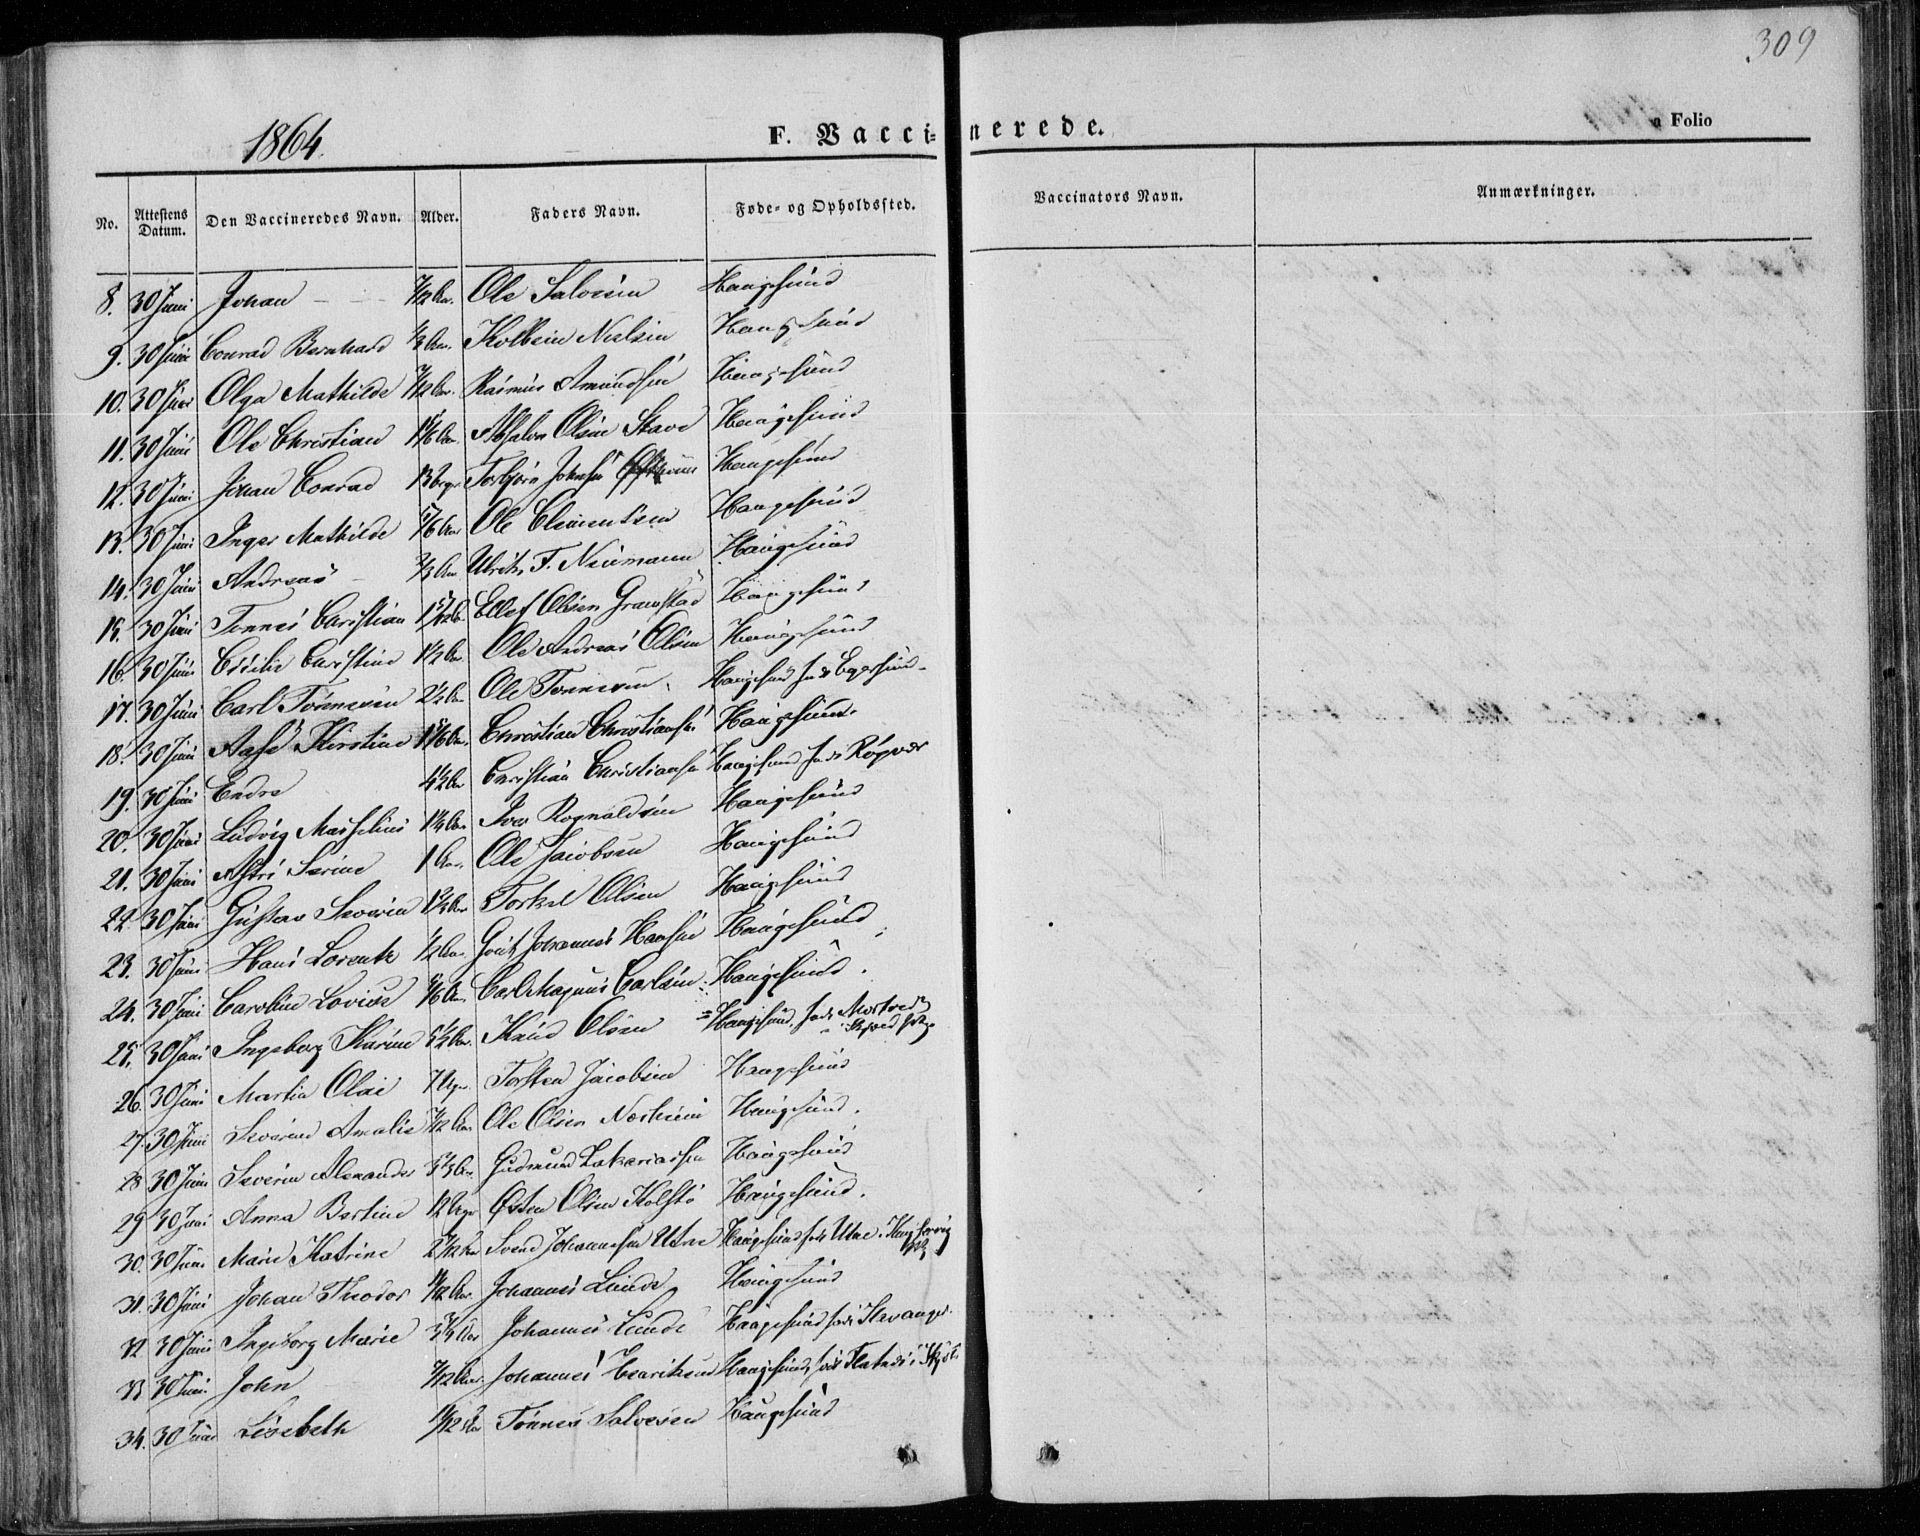 309
1864.
F. Vaccinerede.
Folio
No. Attestens Datum. Den Vaccineredes Navn. Alder. Faders Navn. Føde- og Opholdssted. Vaccinators Navn. Anmærkninger.
8. 30 Juni Johan 7/12 Aar. Ole Salvesen Haugesund
9. 30 Juni Conrad Bernhard Kolbein Nielsen Haugesund
10. 30 Juni Olga Mathilde 7/12 Aar. Rasmus Amundsen Haugesund
11. 30 Juni Ole Christian 1 1/6 Aar Absalon Olsen Stave Haugesund
12. 30 Juni Johan Conrad 13 Uger Torbjørn Johnsen Haugesund
13. 30 Juni Inger Mathilde 5/6 Aar Ole Clementsen Haugesund
14. 30 Juni Andreas 2/3 Aar Ulrik F. Neumann Haugesund
15. 30 Juni Tønnes Christian Ellef Olsen Gramstad Haugesund
16. 30 Juni Cecilie Christine 1 1/2 Aar Ole Andreas Olsen Haugesund
17. 30 Juni Carl Tønnesen 2 1/2 Aar Ole Tønnesen Haugesund født Egersund
18. 30 Juni Aase Kirstine Christian Christiansen Haugesund.
19. 30 Juni Endre 4 1/2 Aar Christian Christiansen Haugesund født Røgvær
20. 30 Juni Ludvig Masselius Iver Rognaldsen Haugesund
21. 30 Juni Astri Serine 1 Aar. Ole Jacobsen Haugesund
22. 30 Juni Gustav Severin Torkel Olsen Haugesund
23. 30 Juni Hans Lorentz 1/2 Aar Johannes Hansen Haugesund
24. 30 Juni Caroline Lovise 5/6 Aar Carl Magnus Carlsen Haugesund.
25. 30 Juni Ingeborg Karine 5 1/2 Aar. Knud Olsen Haugesund, født
26. 30 Juni Martin Olai 7 Uger Torsten Jacobsen Haugesund
27. 30 Juni Severine Amalie Ole Olsen Haugesund.
28 30 Juni Severin Alexander Gudmund Zakariassen Haugesund
29 30 Juni Anna Bertine 12 Uger Østen Olsen Kolstø Haugesund.
30. 30 Juni Marie Katrine Svend Johannesen Utne Haugesund født Utne i
31. 30 Juni Johan Theodor Johannes Lunde Haugesund
32 30 Juni Ingeborg Marie Johannes Lunde Haugesund født Stavanger.
33 30 Juni. John 7/12 Aar. Johannes Henriksen Haugesund, født
34. 30 Juni Lisebeth Tønnes Salvesen Haugesund